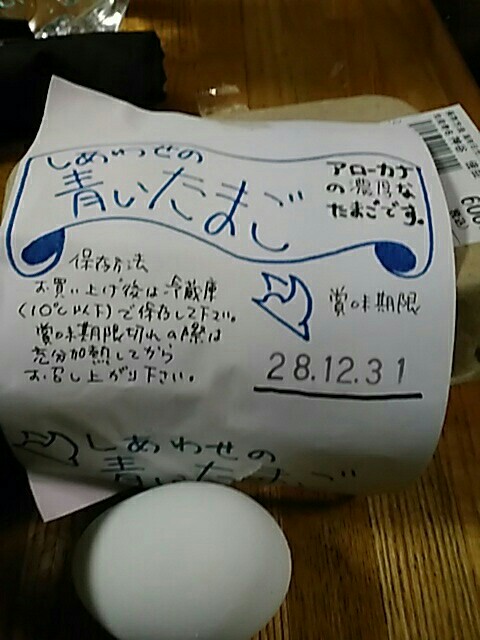 しあわせの
青いたまご
アローカナ
の濃厚な
たまごです。
保存方法
お買い上げ後は冷蔵庫
(10℃以下)で保存して下さい。
賞味期限切れの際は
充分加熱してから
お召し上がり下さい。
賞味期限
28.12.31
しあわせの
青いたまご